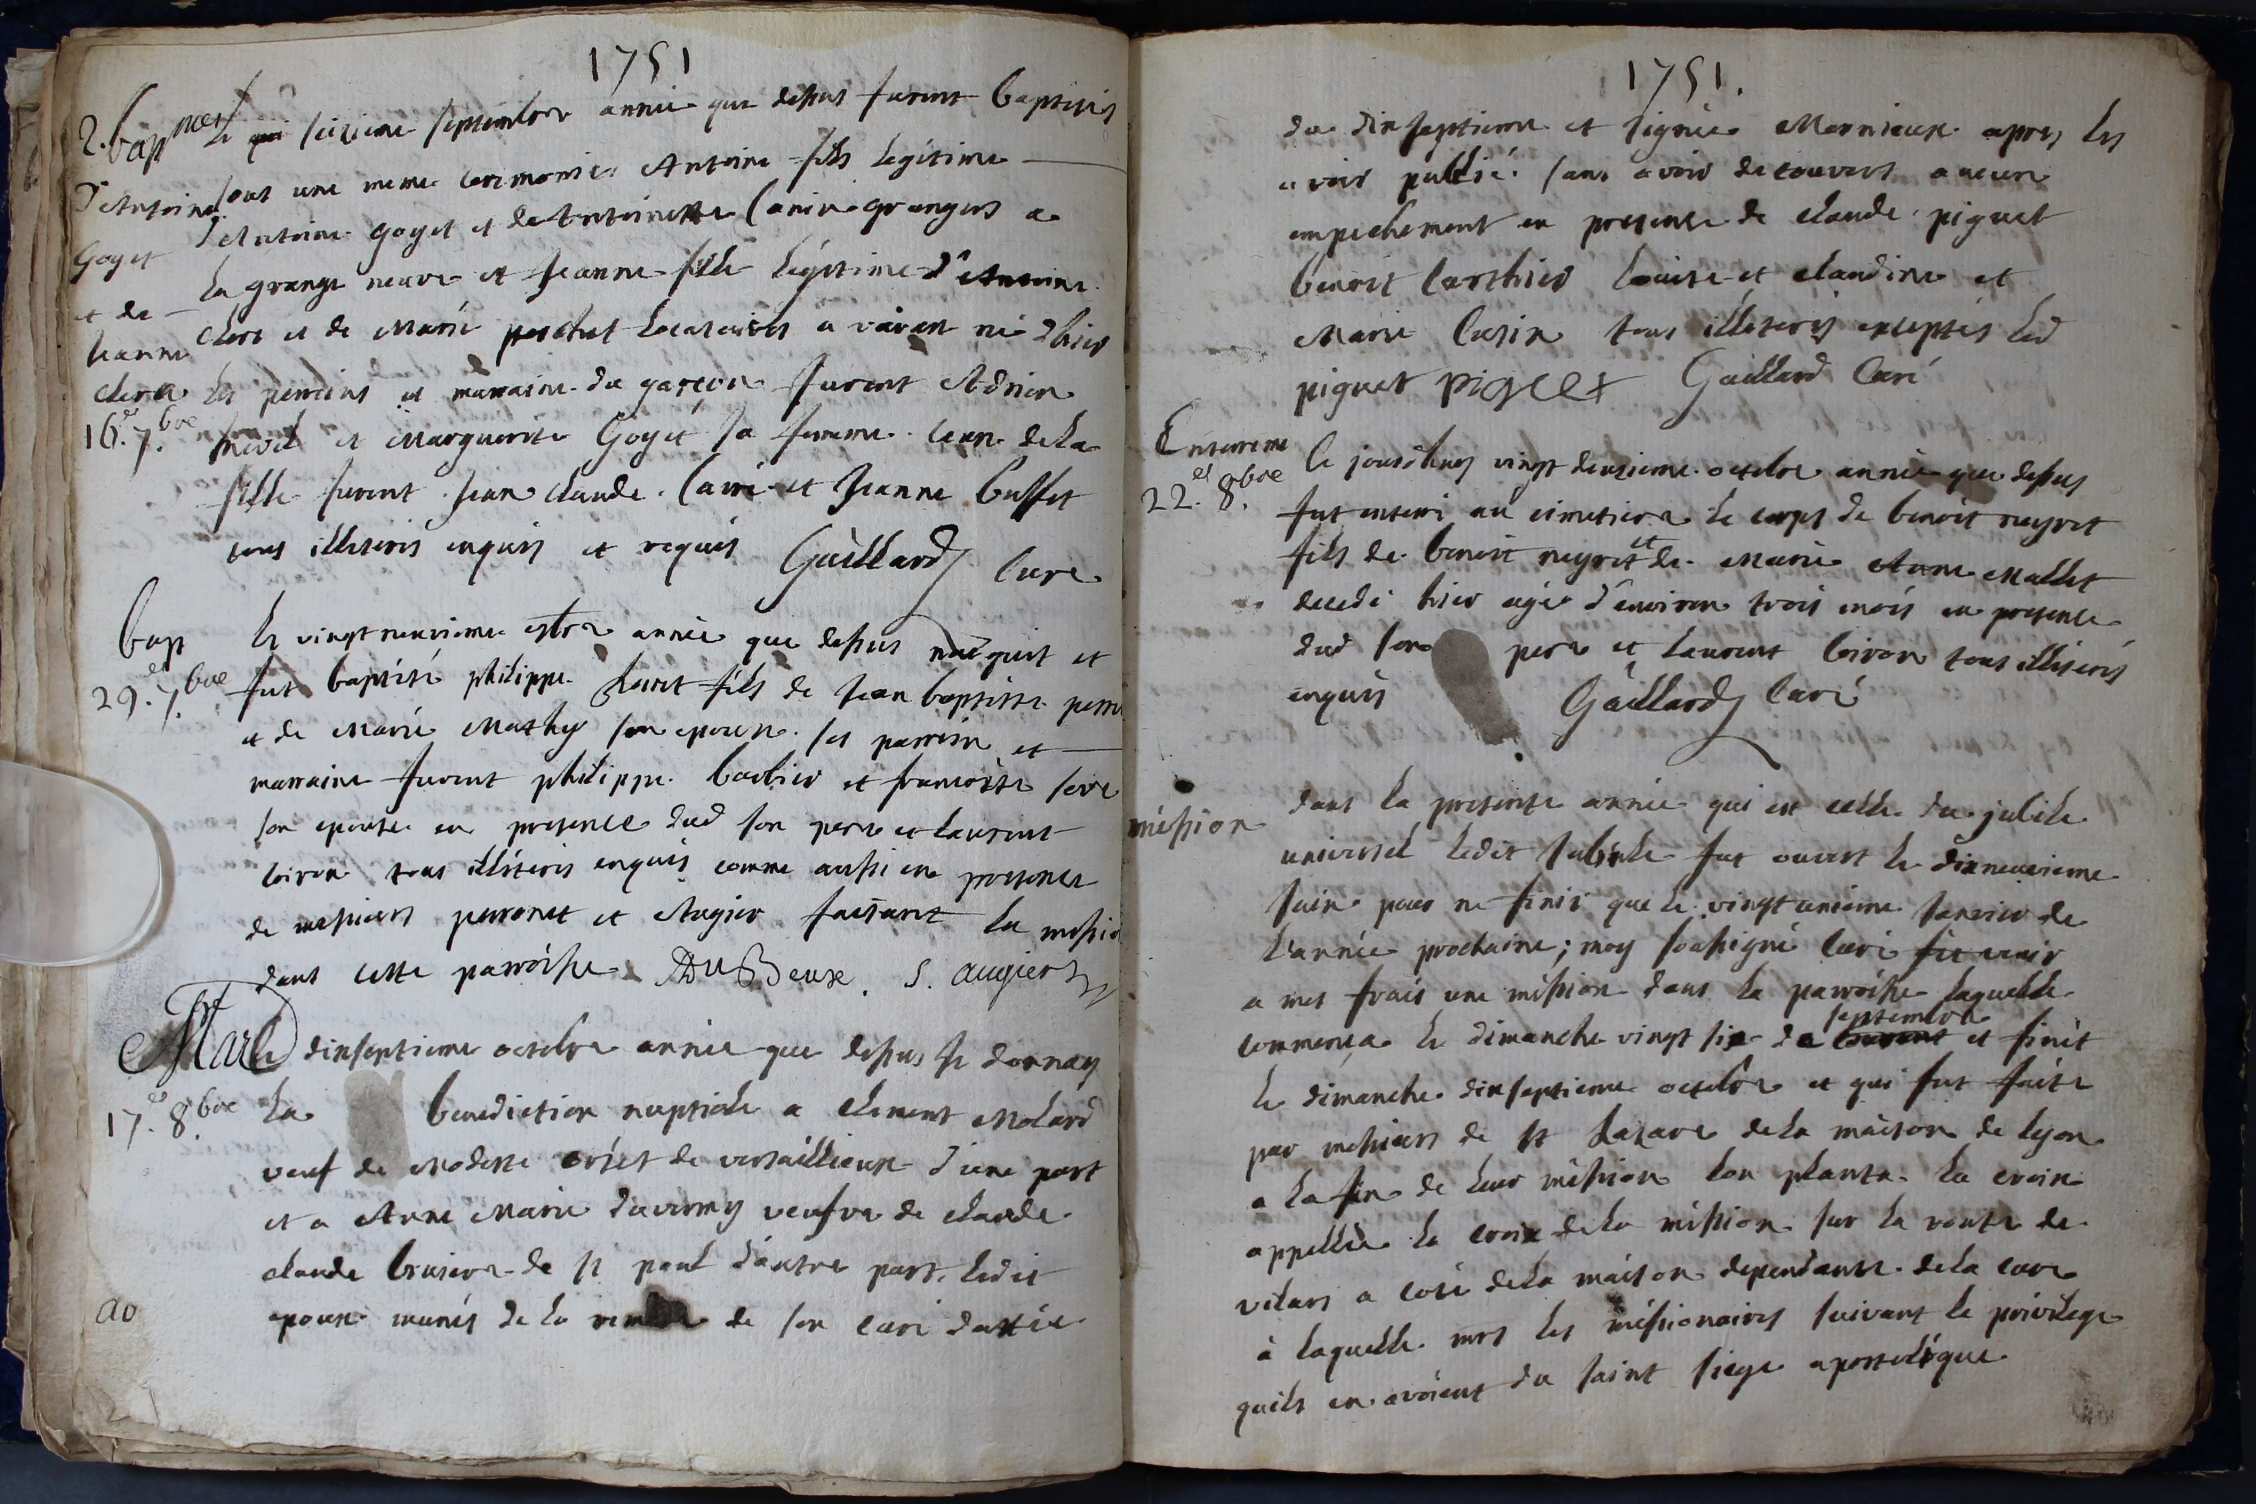 1751
2. bap mes le seizieme septembre année que dessus furent baptisés
d'Antoine sous une meme ceremonie Antoine fils legitime
Goyet d'Antoine Goyet et de Antoinette grangers a
et de la grange neuve et Jeanne fille légitime d'Antoine
Jeanne Clere et de Marie perchet locataires a né d'hier
Clere les perreins et marraine du garçon furent Adrien
16.e 7.bre et Marguerite Goyet sa femme ceux de la
fille furent Jean Claude et Jeanne buffet
tous illiteris enquis et requis Gaillard Curé
bap le vingt neuvieme 7bre année que dessus nacquit et
29.e 7.bre fut baptisé philippe fils de Jean baptiste
et de Marie Mathy son epouse ses parrein et
marraine furent philippe barbier et francoise
son epouse en presence dud son pere et Laurent
Coiron tous illiteris enquis comme aussi en presence
de messieurs perronet et Augier faisant la missio
dans cette parroisse DuBeux. S. augier
Mar le dixseptieme octobre année que dessus je donnay
17.e 8.bre la benediction nuptiale a Clement Molard
veuf de Modeste de versaillieux d'une part
et a Anne Marie duverny veufve de claude
claude brusiere de st paul d'autre part. ledit
epoux munis de la remise de son curé dattée
ao
1751.
du dixseptieme et signée Mernieux apres les
avoir publié sans avoir decouvert aucun
empechement en presence de claude piguet
benoit Carthier Louise et claudine et
Marie tous illiteris exceptés led
piguet piguet Gaillard Curé
Enterreme Ce jourdhuy vingt deuxieme octobre année que dessus
22.e 8.bre fut enterré au cimetiere le corps de benoit neyret
fils de benoit neyret et de Marie Anne Mallet
decedé hier agé d'environ trois mois en presence
dud son pere et Laurent Coiron tous illiteris
enquis Gaillard Curé
mission dans la presente année qui est celle du jubile
universel ledit Jubile fut ouvert le dixneuvieme
Juin pour ne finir que le vingt unieme Janvier de
l'année prochaine; moy soussigné Curé fit venir
a mes frais une mission dans la parroisse laquelle
commença le dimanche vingt six de septembre et finit
le dimanche dixseptieme octobre et qui fut faite
par messieurs de st Lazare de la maison de Lyon
a la fin de leur mission lon planta la croix
appellée la croix de la mission sur la route de
vilars a coté de la maison dependante de la cure
à laquelle mrs les missionaires suivant le privilege
quils en avoient du saint siege apostolique